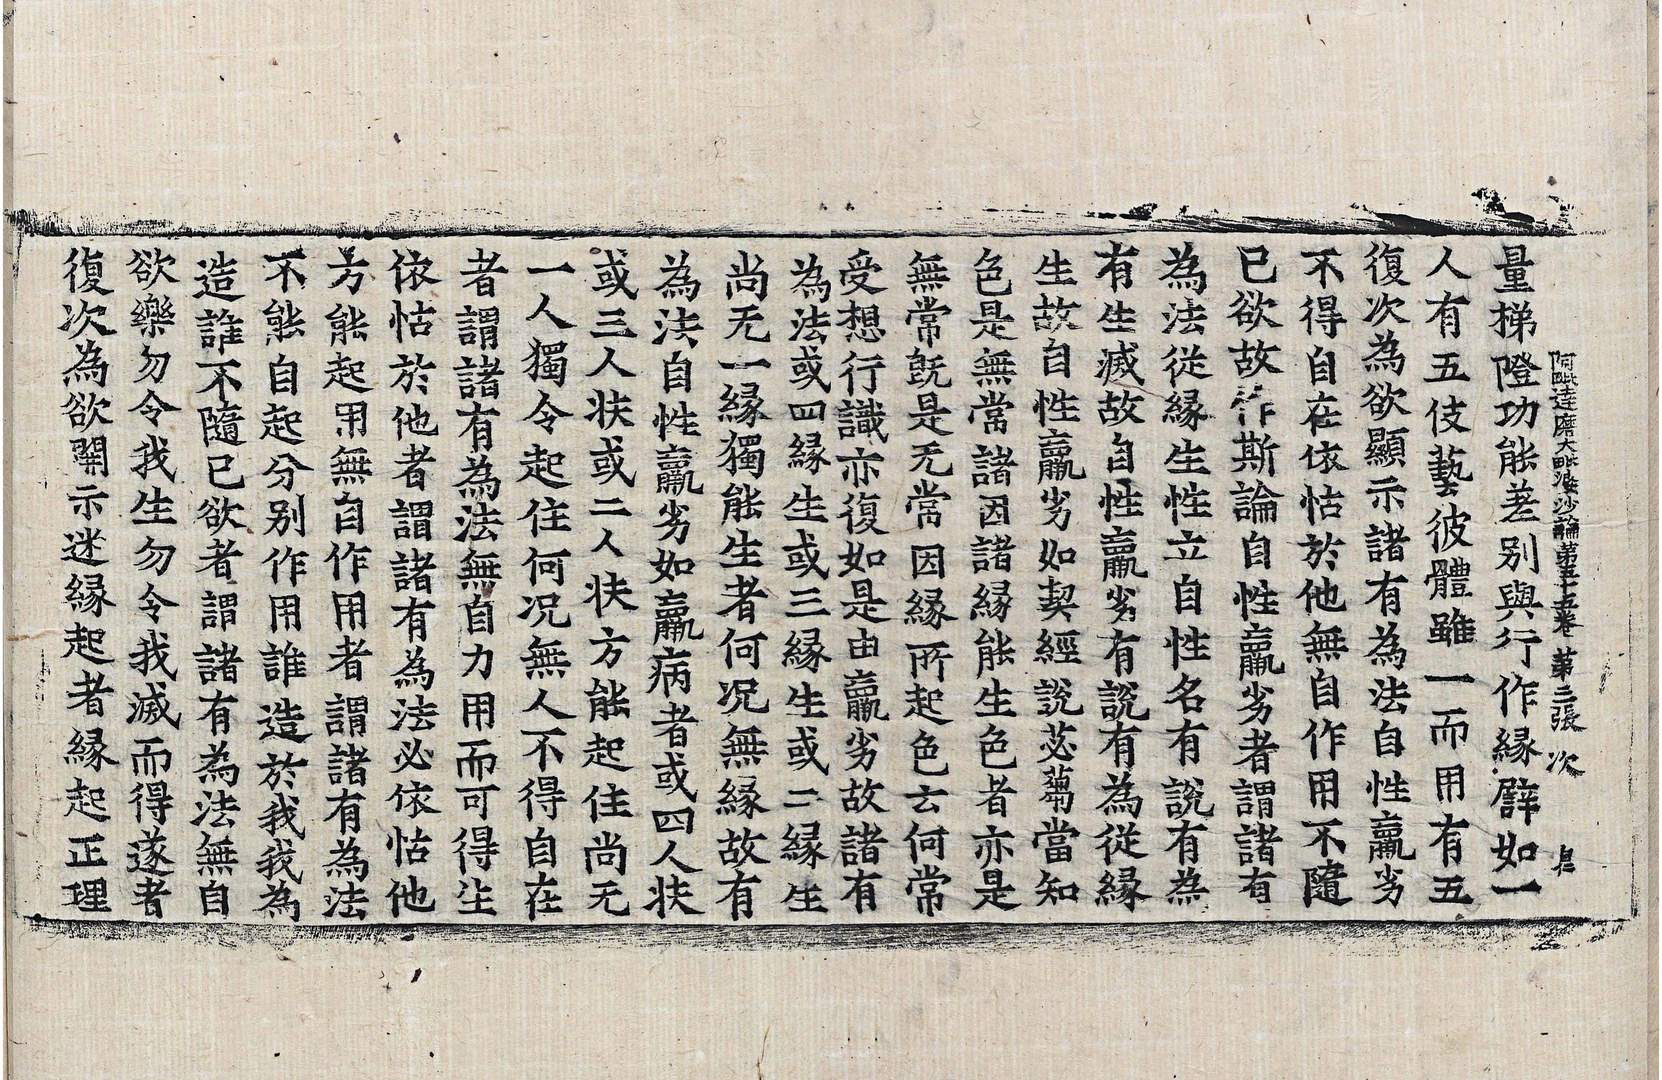 阿毗達磨大毗婆沙論第五十五卷 第二張 次
量梯隥功能差別與行作緣譬如一
人有五伎藝彼體雖一而用有五
復次為欲顯示諸有為法自性羸劣
不得自在依怙於他無自作用不隨
已欲故作斯論自性羸劣者謂諸有
為法從緣生性立自性名有說有為
有生滅故自性羸劣有說有為從緣
生故自性羸劣如契經說苾蒭當知
色是無常諸因諸緣能生色者亦是
無常旣是无常因緣所起色云何常
受想行識亦復如是由羸劣故諸有
為法或四緣生或三緣生或二緣生
尚无一緣獨能生者何況無緣故有
為法自性羸劣如羸病者或四人扶
或三人扶或二人扶方能起住尚无
一人獨令起住何況無人不得自在
者謂諸有為法無自力用而可得生
依怙於他者謂諸有為法必依怙他
方能起用無自作用者謂諸有為法
不能自起分別作用誰造於我我為
造誰不隨已欲者謂諸有為法無自
欲樂勿令我生勿令我滅而得遂者
復次為欲開示迷緣起者緣起正理